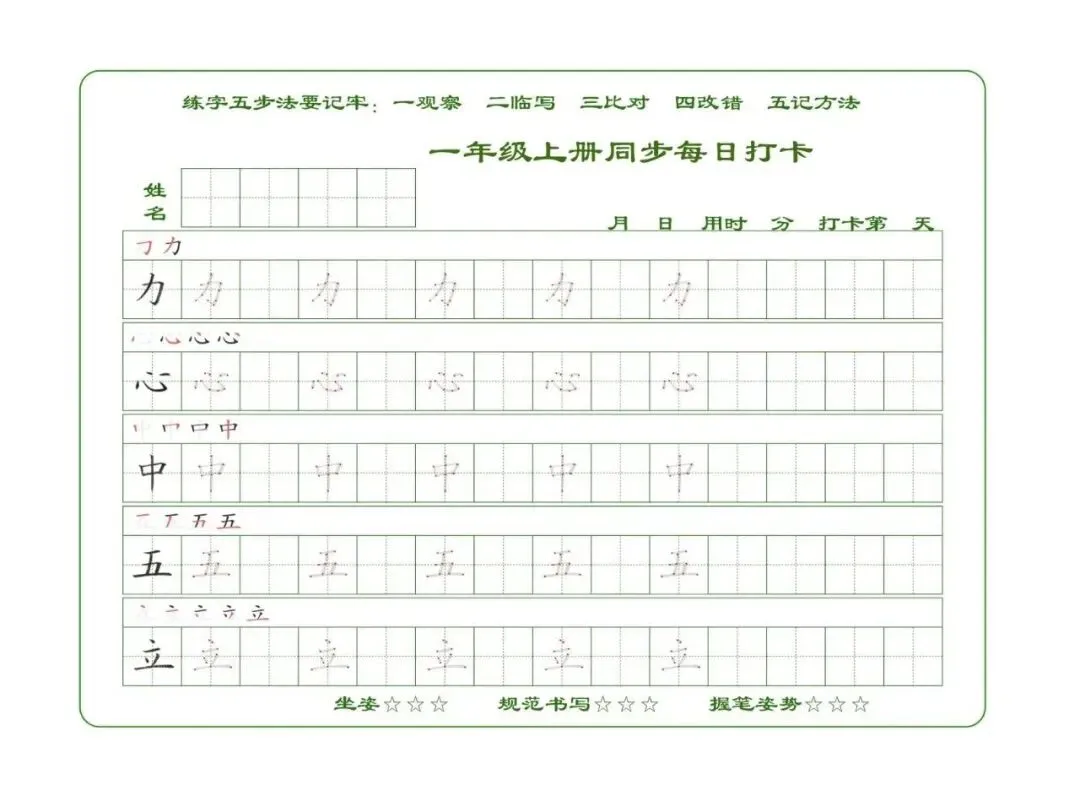 练字五步法要记牢：一观察 二临写 三比对 四改错 五记方法
一年级上册同步每日打卡
姓名
月 日 用时 分 打卡第 天
㇆ 力
力 力 力 力 力 力
心 心 心
心 心 心 心 心 心
中
中 中 中 中 中 中
五 五
五 五 五 五 五 五
立 立
立 立 立 立 立 立
坐姿☆☆☆ 规范书写☆☆☆ 握笔姿势☆☆☆